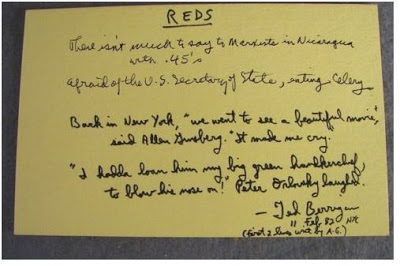 REDS
There isn't much to say to Marxists in Nicaragua
with .45's
afraid of the U-S. Secretary of State, eating Celery.
Back in New York, "we went to see a beautiful movie,"
said Allen Ginsberg. "It made me cry.
"I hadda loan him my big green handkerchief,
to blow his nose on!" Peter Orlovsky laughed.
— Ted Berrigan
11 Feb 82 NYC
(first 2 lines writ by A.G.)